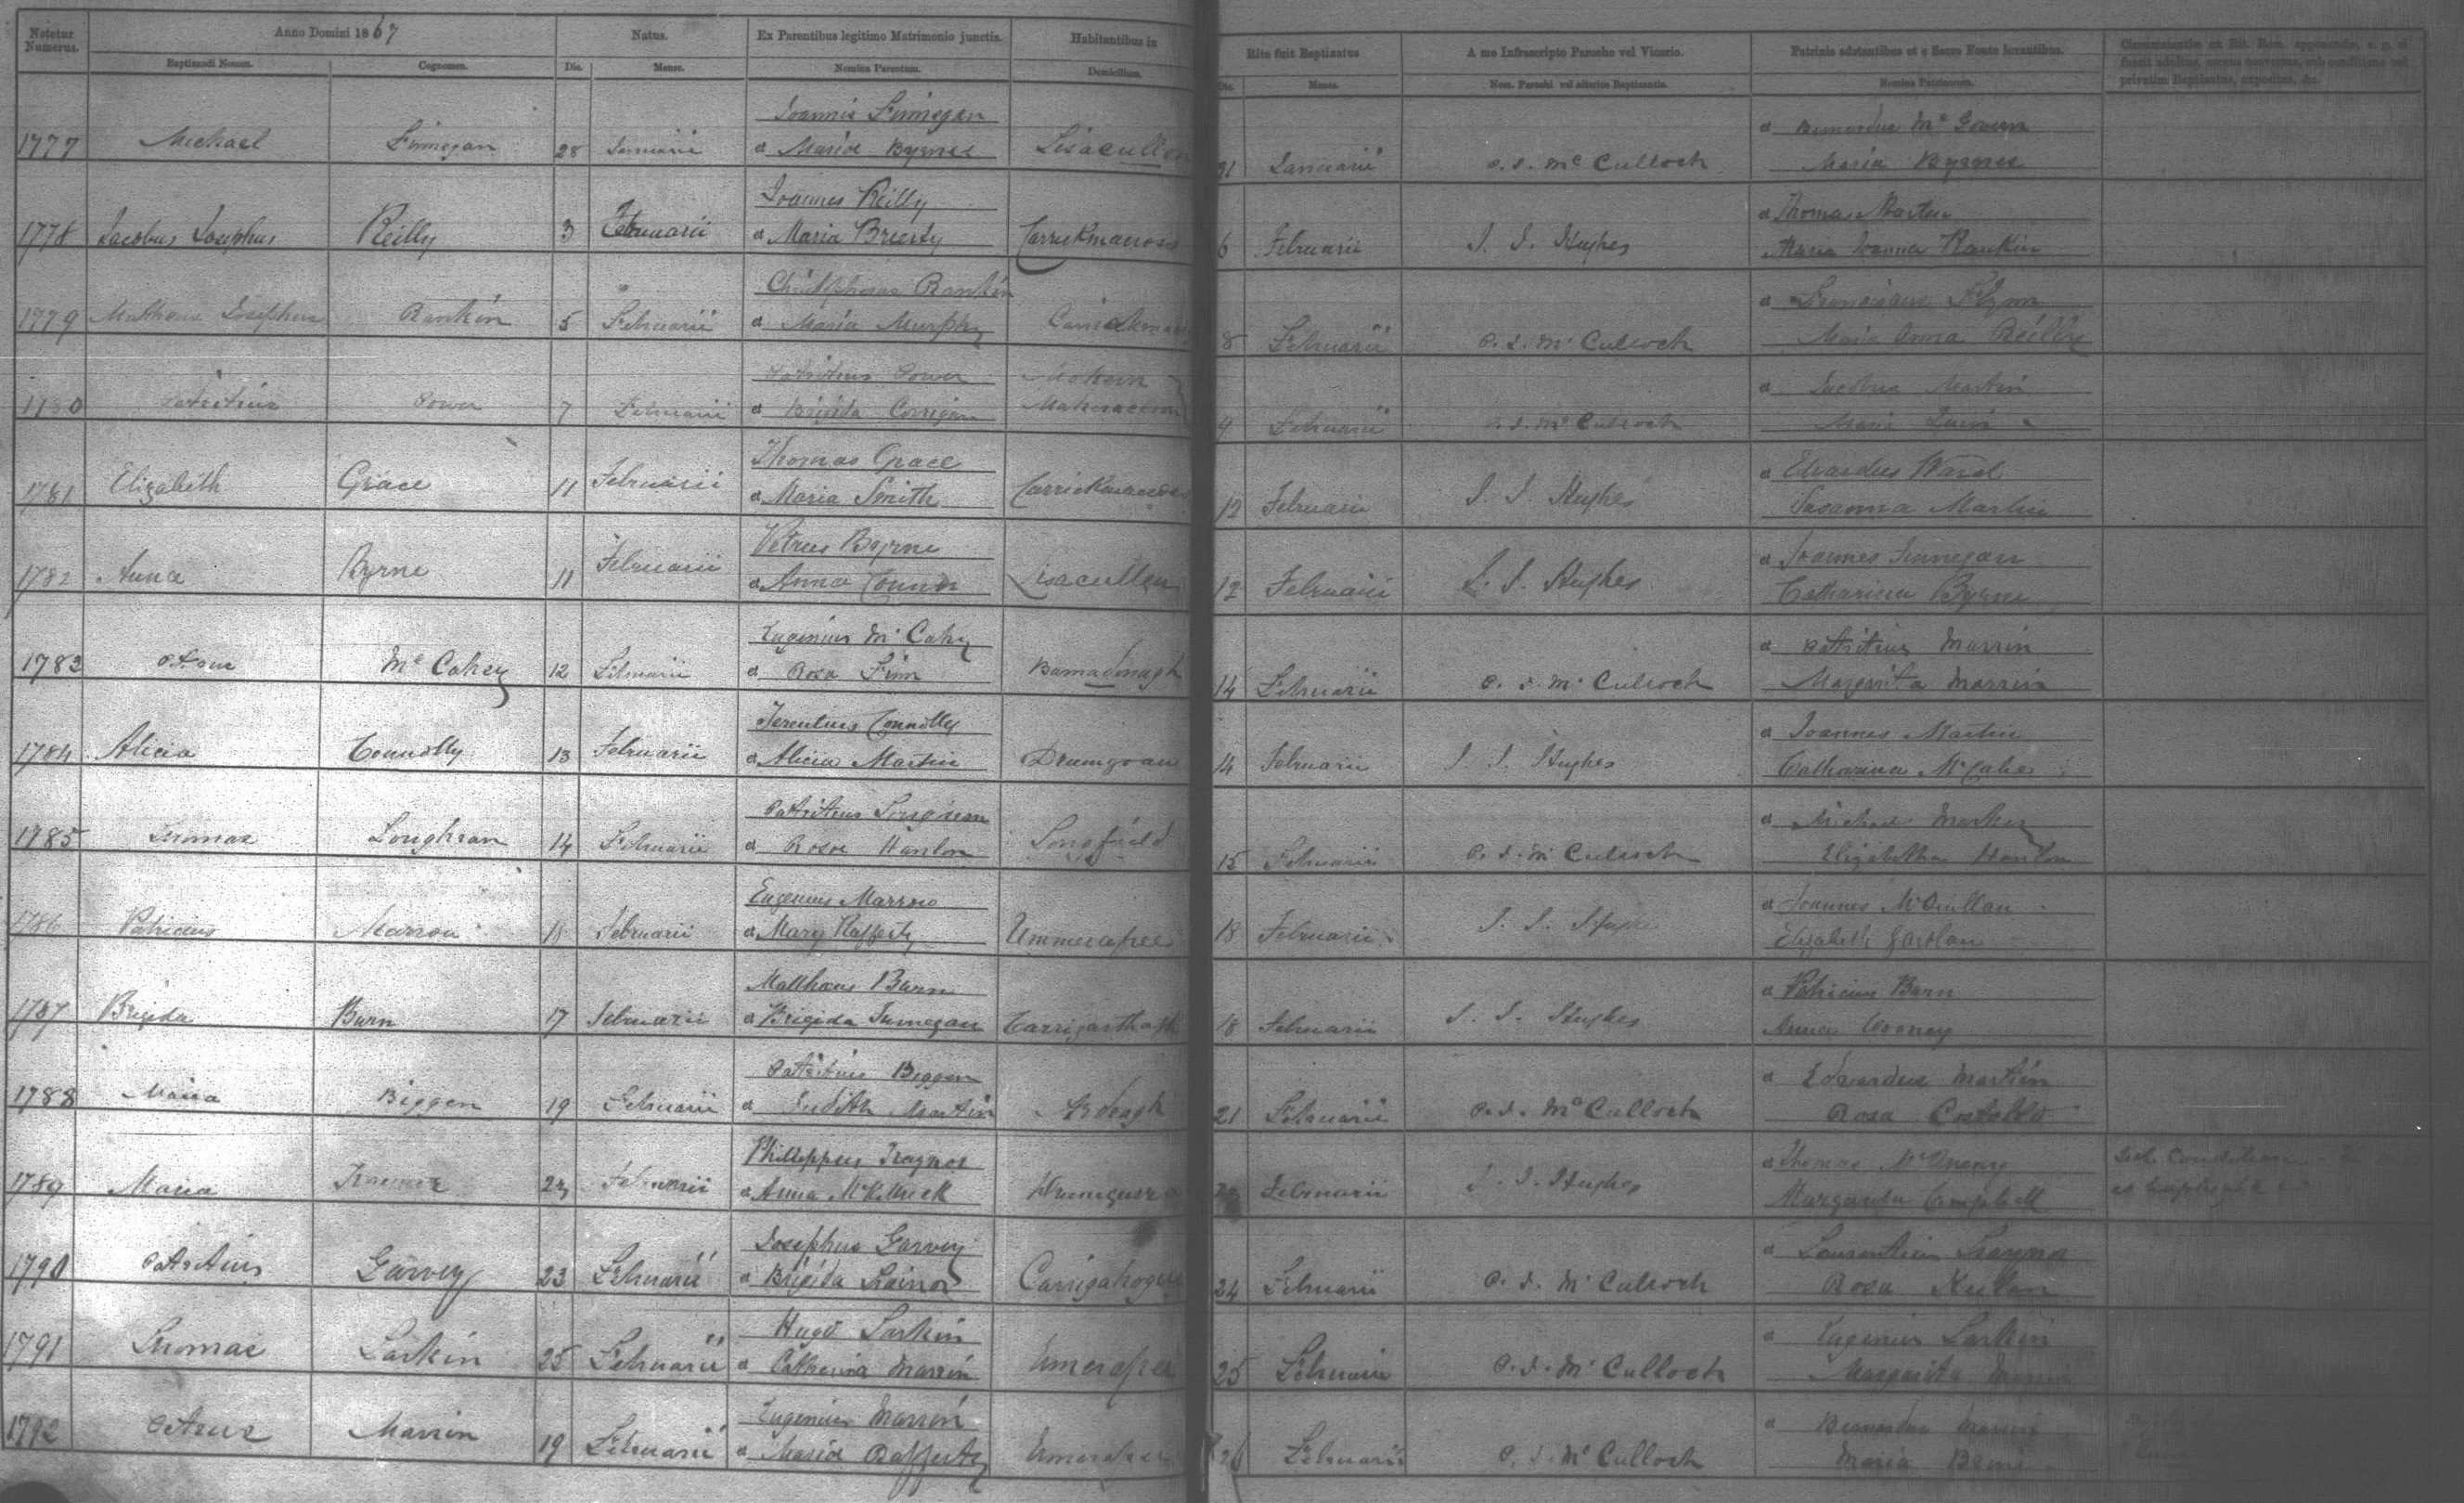 Notetur Numerus. Anno Domini 1867 Natus. Ex Parentibus legitimo Matrimonio junctis. Habitantibus in Rite fuit Baptizatus A me Infrascripto Parocho vel Vicario. Patrinis adstantibus et e Sacro Fonte levantibus. Circumstantiæ ex Rit. Rom. apponendæ, e. g. si fuerit adultus, recens conversus, sub conditione vel privatim Baptizatus, expositus, &c.
Baptizandi Nomen. Cognomen. Die. Mense. Nomina Parentum. Domicilium. Die. Mense. Nom. Parochi vel alterius Baptizantis. Nomina Patrinorum.
Joannis Finnegan et Bernardus Mc Govern
1777 Michael Finnegan 28 Januarii et Maria Byrnes Lisacullon 31 Januarii P. J. Mc Culloch Maria Byrnes
Joannes Reilly et Thomas Martin
1778 Jacobus Josephus Reilly 3 Februarii et Maria Brierty Carrickmacross 6 Februarii J. J. Hughes Maria Joanna Rankin
Christopherus Rankin et Franciscus Flynn
1779 Matheus Josephus Rankin 5 Februarii et Maria Murphy 8 Februarii P. J. Mc Culloch Maria Anna Reilly
Patritius Power et Jacobus Martin
1780 Patritius Power 7 Februarii et Brigida Corrigan 9 Februarii P. J. Mc Culloch Maria Quin
Thomas Grace et Edvardus Ward
1781 Elizabeth Grace 11 Februarii et Maria Smith Carrickmacross 12 Februarii J. J. Hughes Susanna Martin
Petrus Byrne et Joannes Finnegan
1782 Anna Byrne 11 Februarii et Anna Connor Lisacullen 12 Februarii J. J. Hughes Catharina Byrne
Eugenius Mc Cahey et Patritius Marrin
1783 Mc Cahey 12 Februarii et Rosa Finn Barnadonagh 14 Februarii P. J. Mc Culloch Margarita Marrin
Terentius Connolly et Joannes Martin
1784 Alicia Connolly 13 Februarii et Alicia Martin Drumgoan 14 Februarii J. J. Hughes Catharina McCabe
Patritius Loughran et Michael
1785 Thomas Loughran 14 Februarii et Rosa Hanlon Longfield 15 Februarii P. J. Mc Culloch Elizabetha Hanlon
Eugenius Marron et Joannes McQuillan
1786 Patricius Marron 18 Februarii et Mary Rafferty Ummerafree 18 Februarii J. J. Hughes Elizabeth
Matthaeus Burn et Patricius Burn
1787 Brigida Burn 17 Februarii et Brigida Finnegan 18 Februarii J. J. Hughes Anna Cooney
Patritius Biggen et Edwardus Martin
1788 Maria Biggen 19 Februarii et Judith Martin Ardragh 21 Februarii P. J. Mc Culloch Rosa Costello
Philippus Traynor et Thomas
1789 Maria Traynor 23 Februarii et Anna McKittrick Februarii J. J. Hughes Margarita Campbell sub conditione
Josephus Garvey et Laurentius Traynor
1790 Patritius Garvey 23 Februarii et Brigida Trainor 24 Februarii P. J. Mc Culloch Rosa
Hugo Larkin et Eugenius Larkin
1791 Thomas Larkin 25 Februarii et Catherina Marrin Umerafree 25 Februarii P. J. Mc Culloch Margarita
Eugenius Marrin et Bernardus Marrin
1792 Petrus Marrin 19 Februarii et Maria Rafferty Umerafree 26 Februarii P. J. Mc Culloch Maria